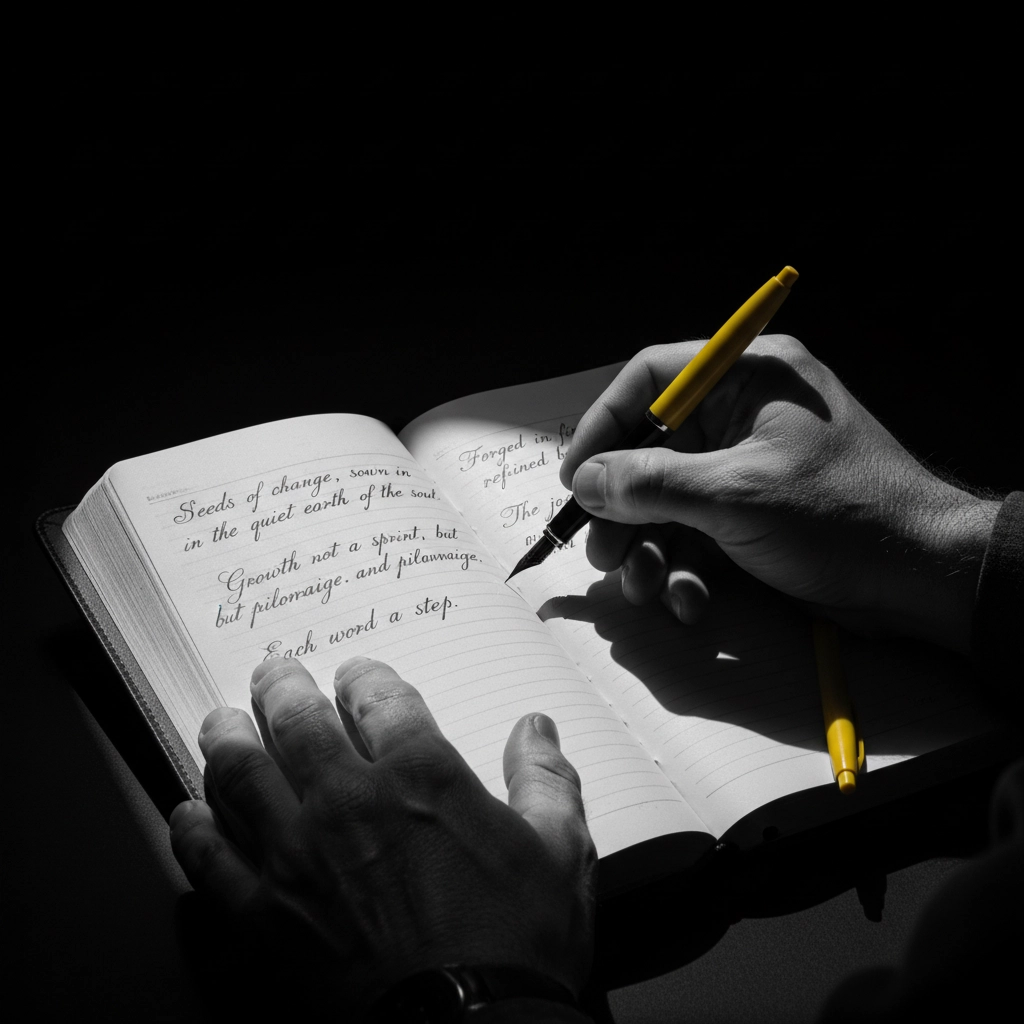 Seeds of change, sown in
in the quiet earth of the soul.
Growth not a sprint, but
but pilomaige. and pilawnaige.
Each word a step.
Forged in
refined
The